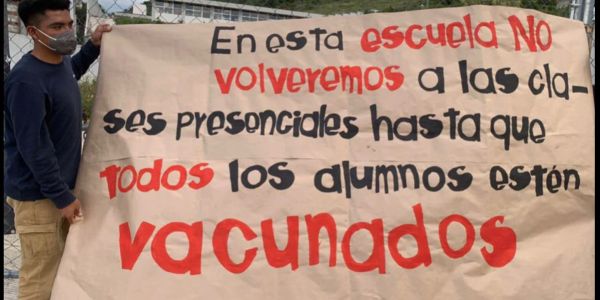 En esta escuela NO
volveremos a las cla-
ses presenciales hasta que
todos los alumnos estén
vacunados